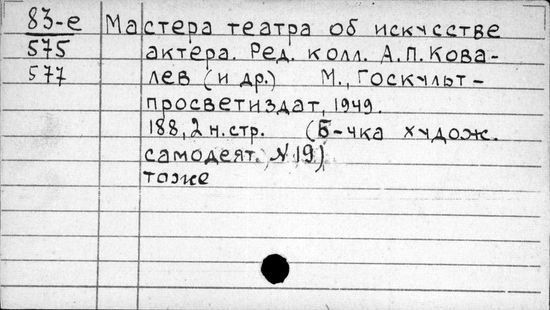 83-е Мастера театра об искусстве
575 актера. Ред. колл. А.П. Кова-
577 лев (и др.) М., Госкульт-
просветиздат, 1949.
188, 2 н. стр. (Б-чка худож.
самодеят. N 19)
тоже